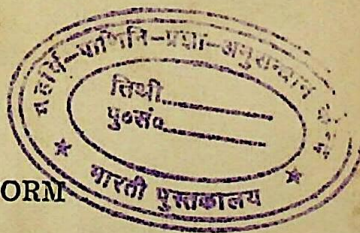 महर्षि-पाणिनि-प्रज्ञा-अनुसन्धान केन्द्र
तिथी..................
पु०सं०..................
★ भारती पुस्तकालय ★
ORM